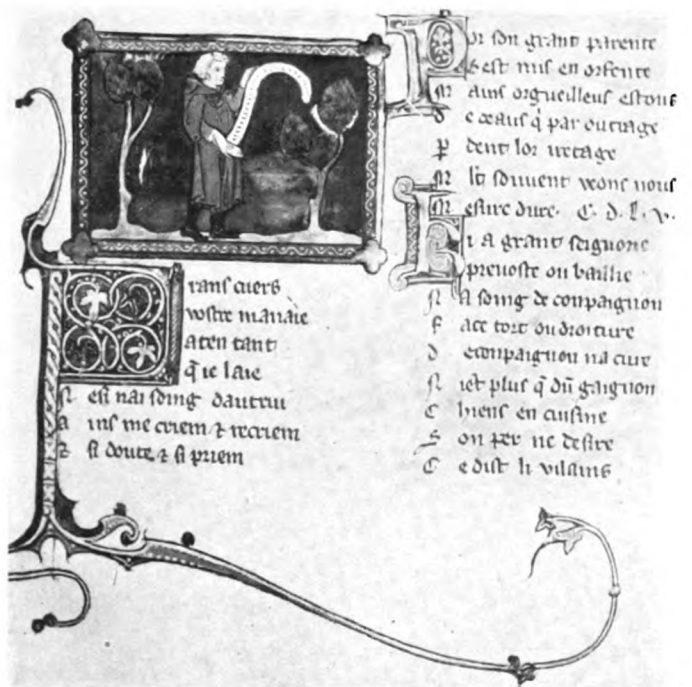 Frans cuers
vostre manaie
aten tant
q̃ ie laie
N est nai soing dautrui
A ins me criem ⁊ recriem
Z si doute ⁊ si priem
Por son grant parente
S est mis en orfente
M ains orgueilleus estous
d e ceaus q̃ par outrage
P dent lor
M lt souvent veons nous
M esire dure. C. d. l. v.
Ki a grant seignorie
prevoste ou baillie
N a soing de conpaignon
F ace tort ou droiture
D econpaignon na cure
N ient plus q̃ dũ gaignon
C hiens en cuisine
S on per ne desire
C e dist li vilains